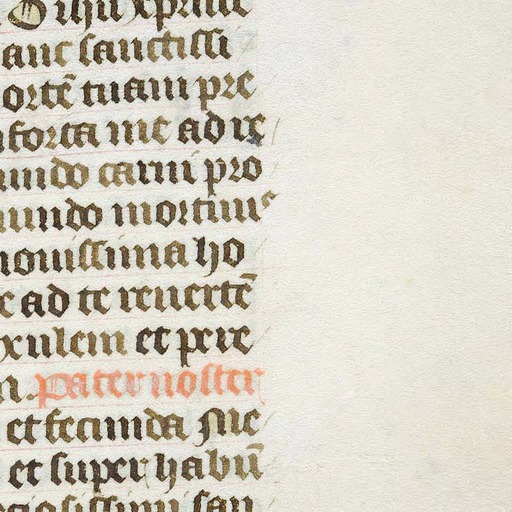 O ihu xpriste
anc sanctissi
ortē tuam pre
nforta me ad re
undo carni pro
mundo mortuus
nouissima ho
e ad te reuertē
xulem et pere
m. Pater noster
et fecunda Me
et super habū
ciosissimi san